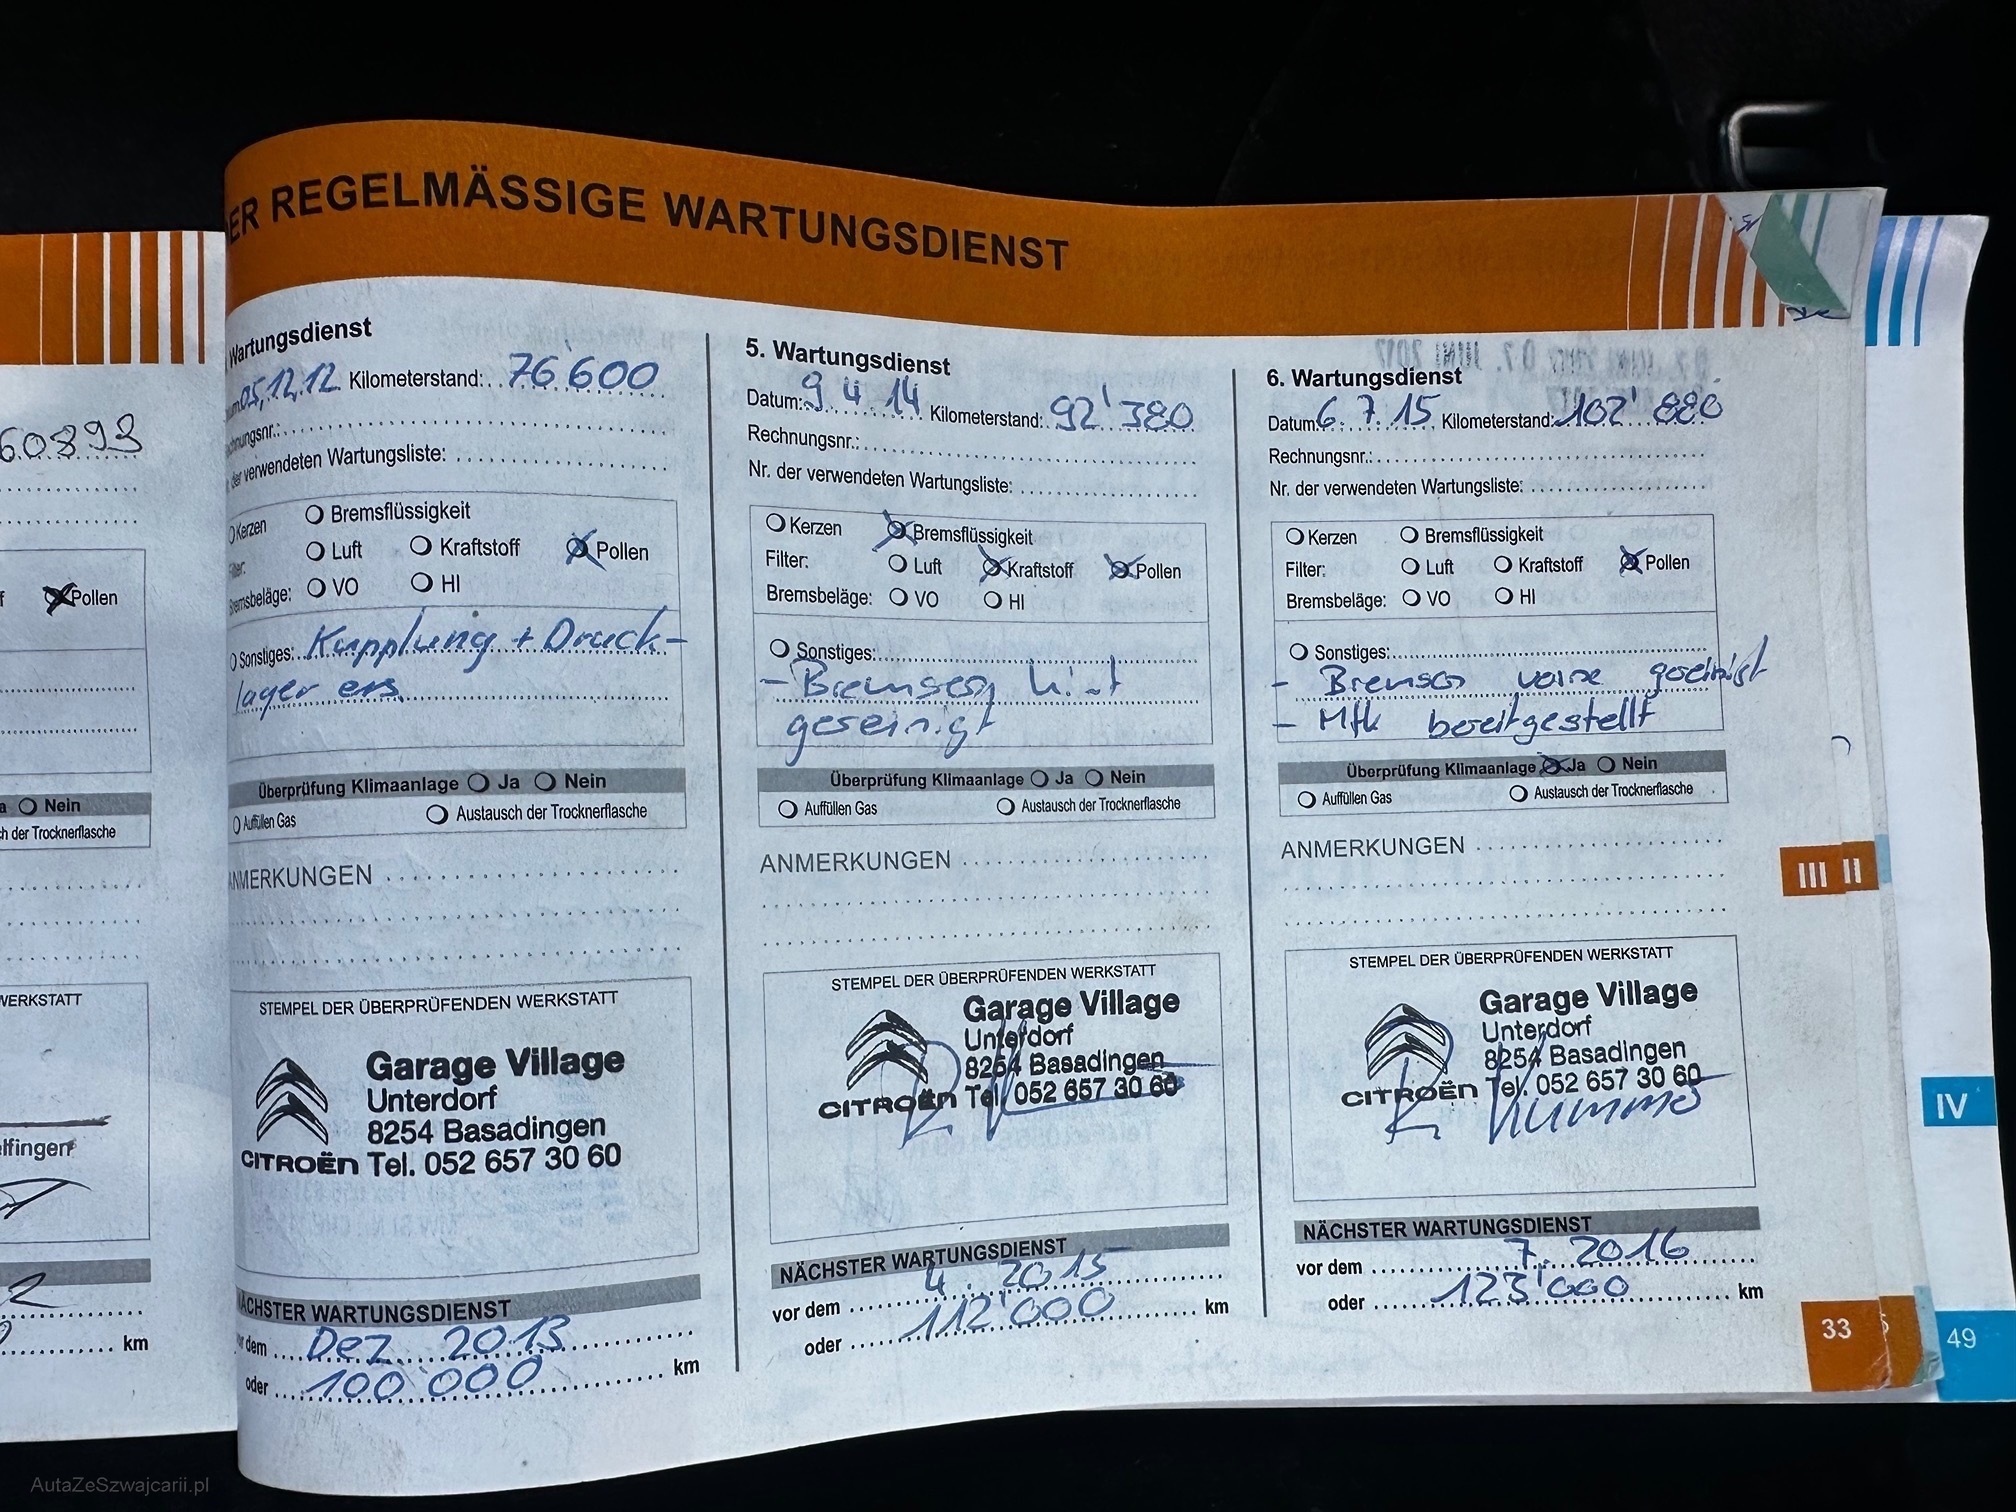 ER REGELMÄSSIGE WARTUNGSDIENST
60893
Pollen
Nein
h der Trocknerflasche
WERKSTATT
elfingen
km
Wartungsdienst
05.12.12 Kilometerstand: 76'600
chnungsnr.:
der verwendeten Wartungsliste:
Kerzen Bremsflüssigkeit
Filter: Luft Kraftstoff Pollen
Bremsbeläge: VO HI
Sonstiges: Kupplung + Druck-
lager ers
Überprüfung Klimaanlage Ja Nein
Auffüllen Gas Austausch der Trocknerflasche
ANMERKUNGEN
STEMPEL DER ÜBERPRÜFENDEN WERKSTATT
Garage Village
Unterdorf
8254 Basadingen
CITROËN Tel. 052 657 30 60
NÄCHSTER WARTUNGSDIENST
dem Dez 2013
oder 100'000 km
5. Wartungsdienst
Datum: 9 4 14 Kilometerstand: 92'380
Rechnungsnr.:
Nr. der verwendeten Wartungsliste:
Kerzen Bremsflüssigkeit
Filter: Luft Kraftstoff Pollen
Bremsbeläge: VO HI
Sonstiges:
- Bremsen hint
gereinigt
Überprüfung Klimaanlage Ja Nein
Auffüllen Gas Austausch der Trocknerflasche
ANMERKUNGEN
STEMPEL DER ÜBERPRÜFENDEN WERKSTATT
Garage Village
Unterdorf
8254 Basadingen
CITROËN Tel. 052 657 30 60
NÄCHSTER WARTUNGSDIENST
vor dem 4. 2015
oder 112'000 km
6. Wartungsdienst
Datum: 6.7.15 Kilometerstand: 102'880
Rechnungsnr.:
Nr. der verwendeten Wartungsliste:
Kerzen Bremsflüssigkeit
Filter: Luft Kraftstoff Pollen
Bremsbeläge: VO HI
Sonstiges:
- Bremsen vorne gereinigt
- Mfk bereitgestellt
Überprüfung Klimaanlage Ja Nein
Auffüllen Gas Austausch der Trocknerflasche
ANMERKUNGEN
STEMPEL DER ÜBERPRÜFENDEN WERKSTATT
Garage Village
Unterdorf
8254 Basadingen
CITROËN Tel. 052 657 30 60
NÄCHSTER WARTUNGSDIENST
vor dem 7. 2016
oder 123'000 km
III II
IV
33
49
AutaZeSzwajcarii.pl